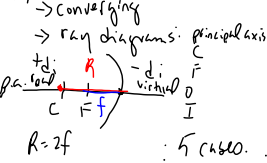 → converging
→ ray diagrams: principal axis
C
F
O
I
+di
real
R
-di
virtual
p.a.
C F f
R=2f
: 5 cases.